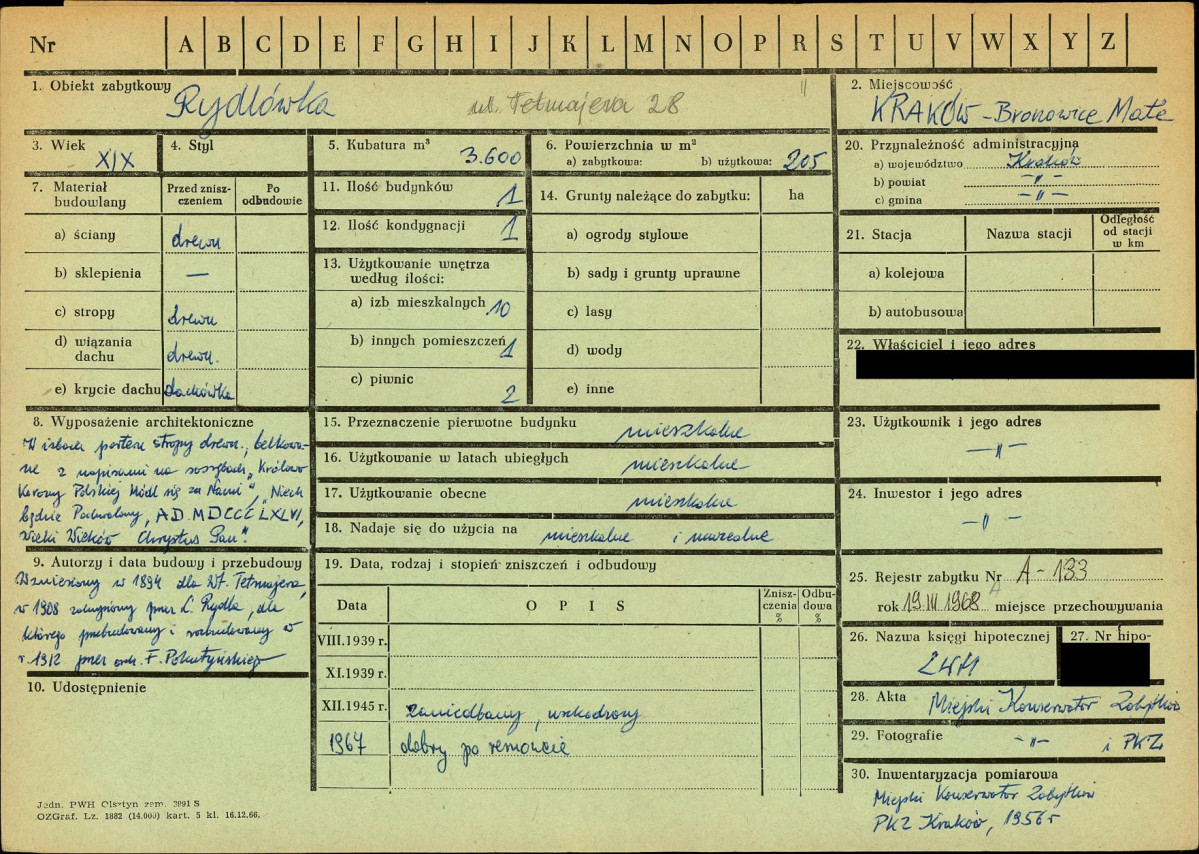 Nr A B C D E F G H I J K L M N O P R S T U V W X Y Z
1. Obiekt zabytkowy Rydlówka ul. Tetmajera 28
2. Miejscowość
KRAKÓW - Bronowice Małe
3. Wiek XIX
4. Styl
5. Kubatura m³ 3.600
6. Powierzchnia w m²
a) zabytkowa: b) użytkowa: 205
20. Przynależność administracyjna
a) województwo Kraków
b) powiat -"-
c) gmina -"-
7. Materiał budowlany
Przed zniszczeniem
Po odbudowie
a) ściany drewn
b) sklepienia —
c) stropy drewn
d) wiązania dachu drewn.
e) krycie dachu dachówka
11. Ilość budynków 1
12. Ilość kondygnacji 1
13. Użytkowanie wnętrza
według ilości:
a) izb mieszkalnych 10
b) innych pomieszczeń 1
c) piwnic 2
14. Grunty należące do zabytku: ha
a) ogrody stylowe
b) sady i grunty uprawne
c) lasy
d) wody
e) inne
21. Stacja Nazwa stacji Odległość od stacji w km
a) kolejowa
b) autobusowa
22. Właściciel i jego adres
8. Wyposażenie architektoniczne
W izbach parteru stropy drewn., belkowa-
ne z napisami na sosrębach „Królowo
Korony Polskiej Módl się za Nami", „Niech
będzie Pochwalony, AD. MDCCCLXLVI,
Wieki Wieków Chrystus Pan".
15. Przeznaczenie pierwotne budynku mieszkalne
16. Użytkowanie w latach ubiegłych mieszkalne
17. Użytkowanie obecne mieszkalne
18. Nadaje się do użycia na mieszkalne i muzealne
23. Użytkownik i jego adres
-"-
24. Inwestor i jego adres
-"-
9. Autorzy i data budowy i przebudowy
Wzniesiony w 1894 dla Wł. Tetmajera,
w 1908 zakupiony przez L. Rydla, dla
którego przebudowany i rozbudowany w
r. 1912 przez arch. F. Pokutyńskiego
10. Udostępnienie
19. Data, rodzaj i stopień zniszczeń i odbudowy
Data OPIS Zniszczenia % Odbudowa %
VIII.1939 r.
XI.1939 r.
XII.1945 r. zaniedbany, uszkodzony
1967 dobry po remoncie
25. Rejestr zabytku Nr A-133
rok 19.III 1968 miejsce przechowywania
26. Nazwa księgi hipotecznej
LWH
27. Nr hipo-
28. Akta Miejski Konserwator Zabytków
29. Fotografie -"- i PKZ
30. Inwentaryzacja pomiarowa
Miejski Konserwator Zabytków
PKZ Kraków, 1956 r
Jedn. PWH Olsztyn zam. 3991 S
OZGraf. Lz. 1882 (14.000) kart. 5 kl. 16.12.66.